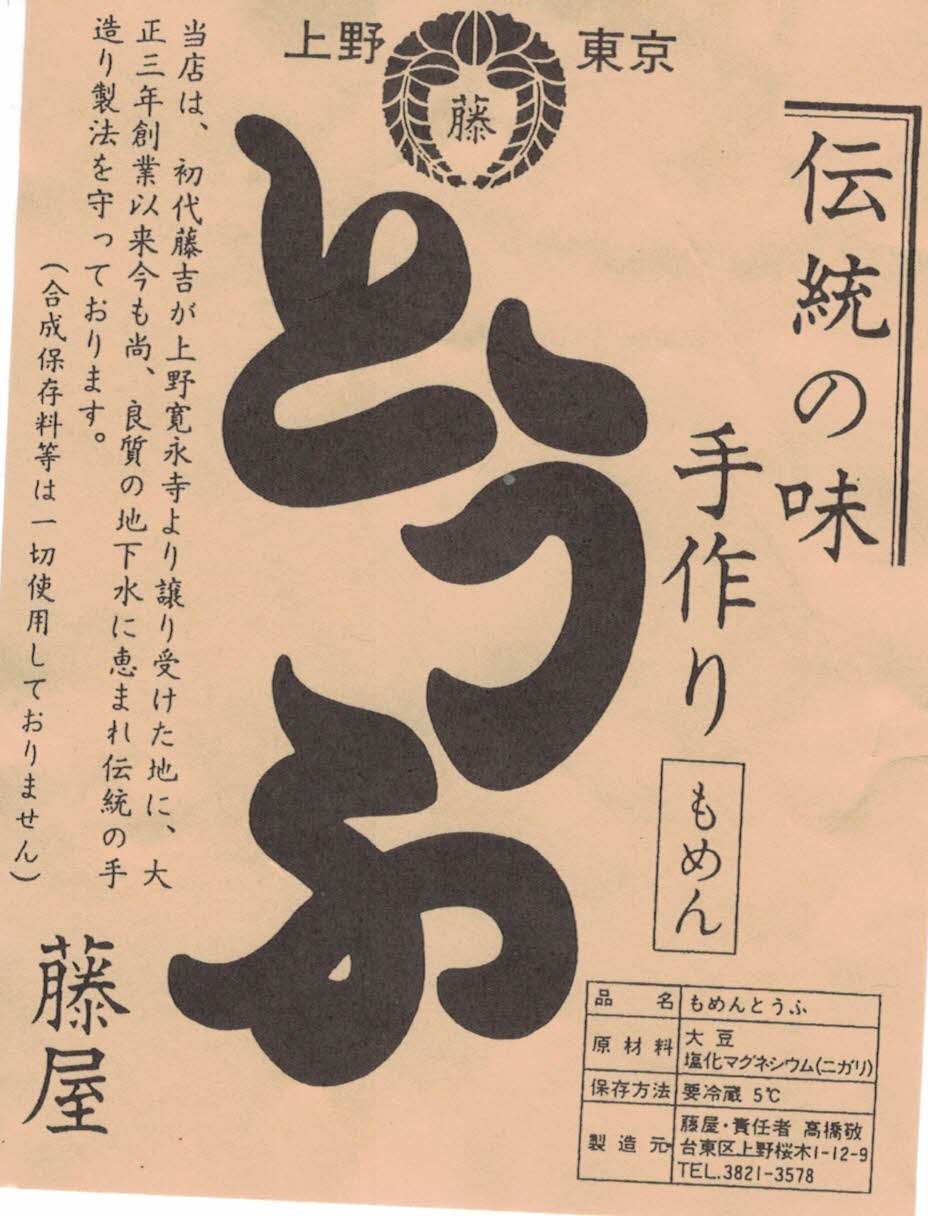 上野 藤 東京
伝統の味
手作り
もめん
とうふ
当店は、初代藤吉が上野寛永寺より譲り受けた地に、大
正三年創業以来今も尚、良質の地下水に恵まれ伝統の手
造り製法を守っております。
(合成保存料等は一切使用しておりません)
藤屋
品名 もめんとうふ
原材料 大豆
塩化マグネシウム(ニガリ)
保存方法 要冷蔵 5℃
製造元 藤屋・責任者 高橋敬
台東区上野桜木1-12-9
TEL.3821-3578